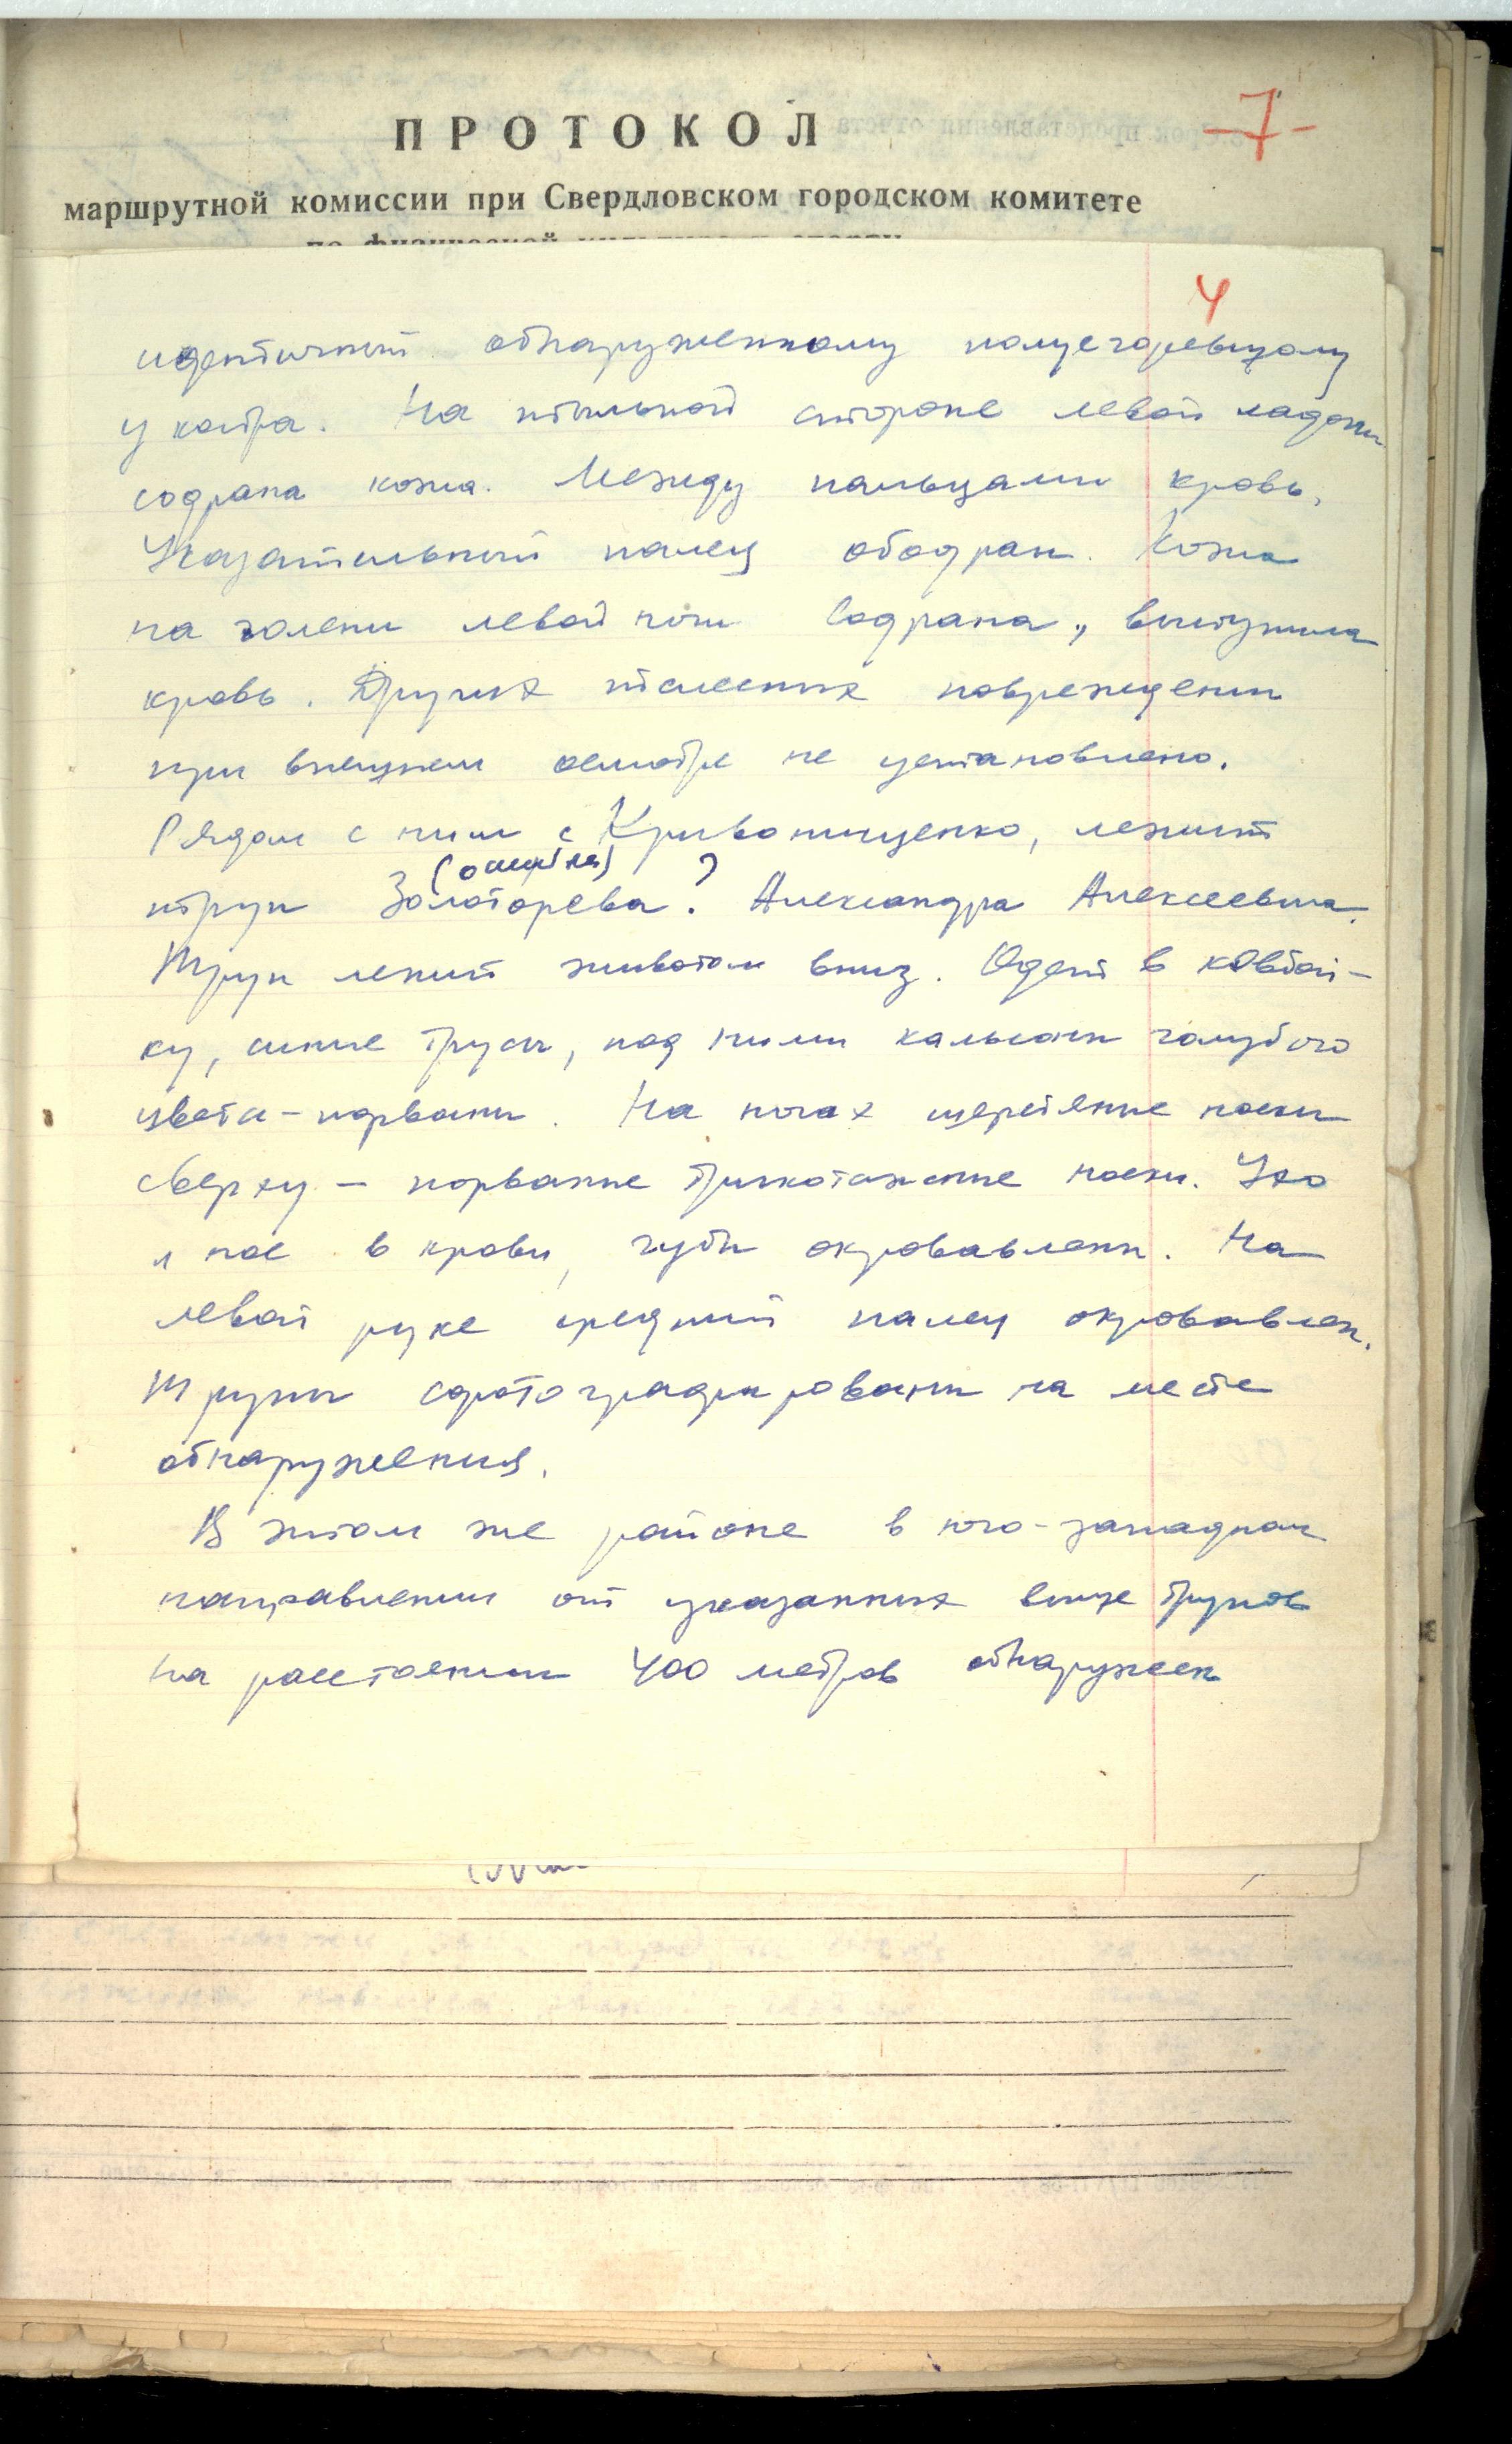 ПРОТОКОЛ
-7-
маршрутной комиссии при Свердловском городском комитете
по физической культуре и спорту
4
идентичный обнаруженному полусгоревшому
у костра. На тыльной стороне левой ладони
содрана кожа. Между пальцами кровь.
Указательный палец ободран. Кожа
на голени левой ноги содрана, выступила
кровь. Других телесных повреждений
при внешнем осмотре не установлено.
Рядом с ним с Кривонищенко, лежит
(ошибка) ?
труп Золоторева. Александра Алексеевича.
Труп лежит животом вниз. Одет в ковбой-
ку, синие трусы, под ними кальсоны голубого
цвета - порваны. На ногах шерстяные носки
сверху - порванные трикотажные носки. Ухо
и нос в крови, губы окровавлены. На
левой руке средний палец окровавлен.
Трупы сфотографированы на месте
обнаружения.
В этом же районе в юго-западном
направлении от указанных выше трупов
на расстоянии 400 метров обнаружен